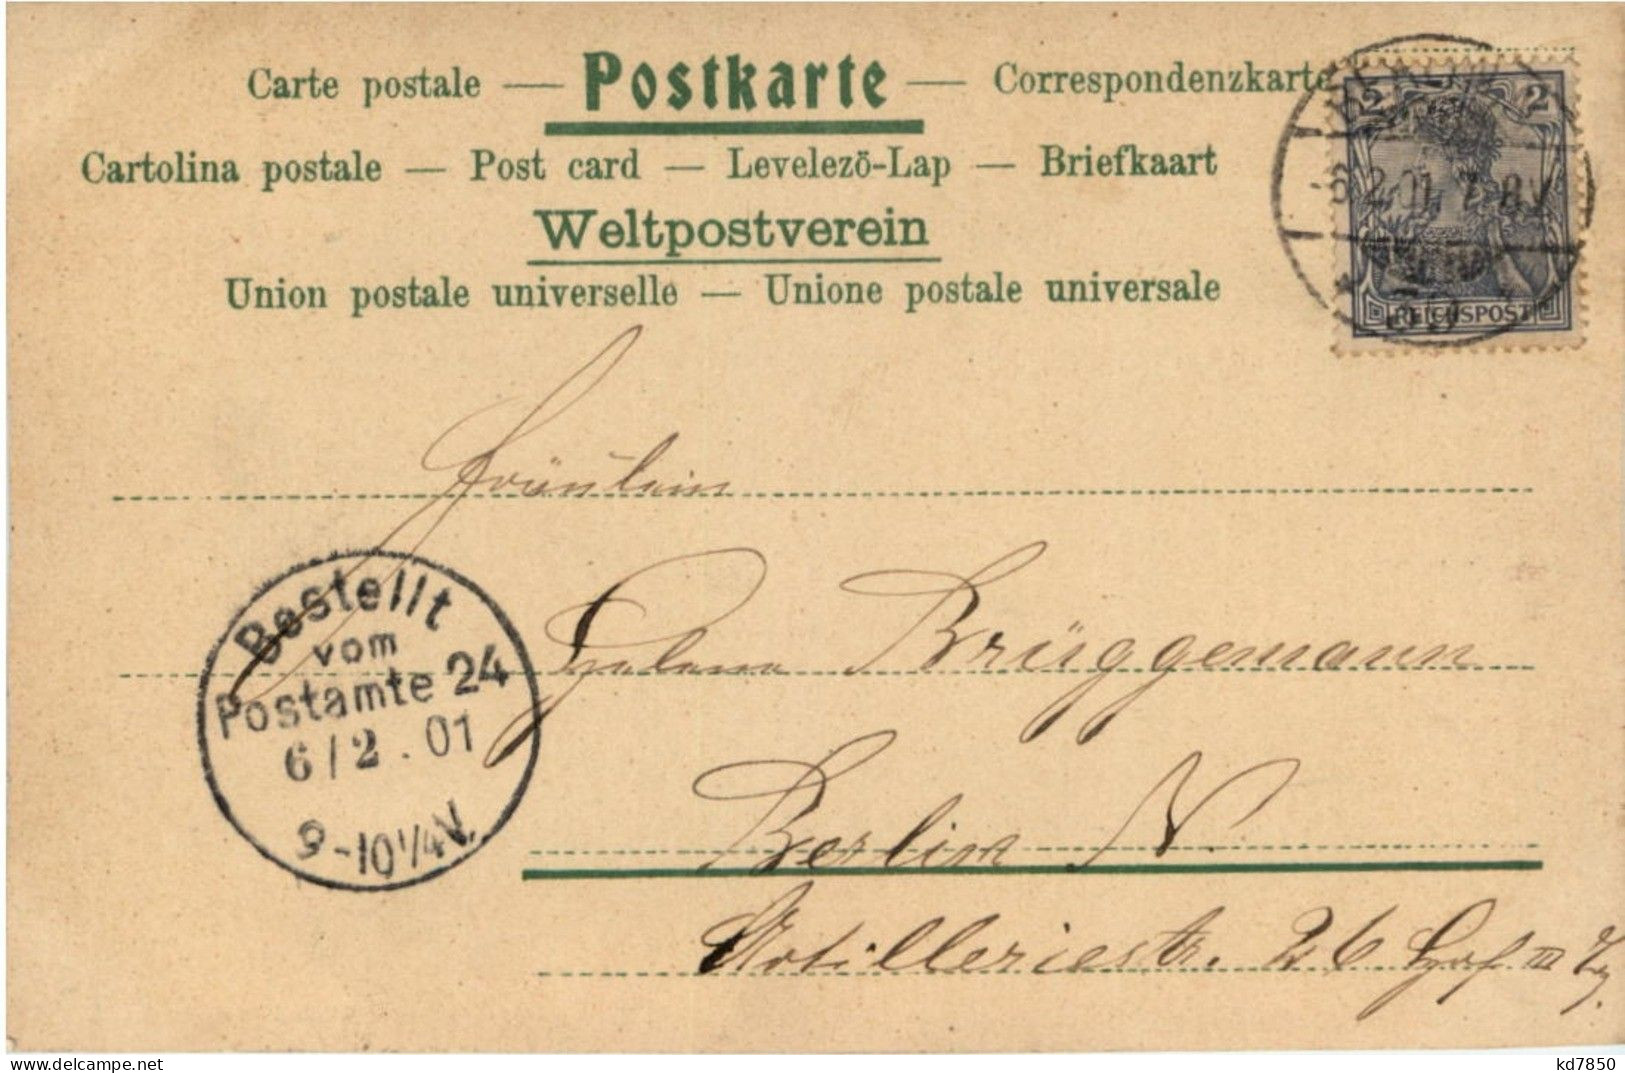 Carte postale — Postkarte — Correspondenzkarte
Cartolina postale — Post card — Levelezö-Lap — Briefkaart
Weltpostverein
Union postale universelle — Unione postale universale
2 2
-6.2.01. 7-8V
REICHSPOST
Fräulein
Brüggemann
Berlin N.
Artilleriestr. 26 Hof III
Bestellt
vom
Postamte 24
6/2.01
9-10 1/4 V.
www.delcampe.net
kd7850